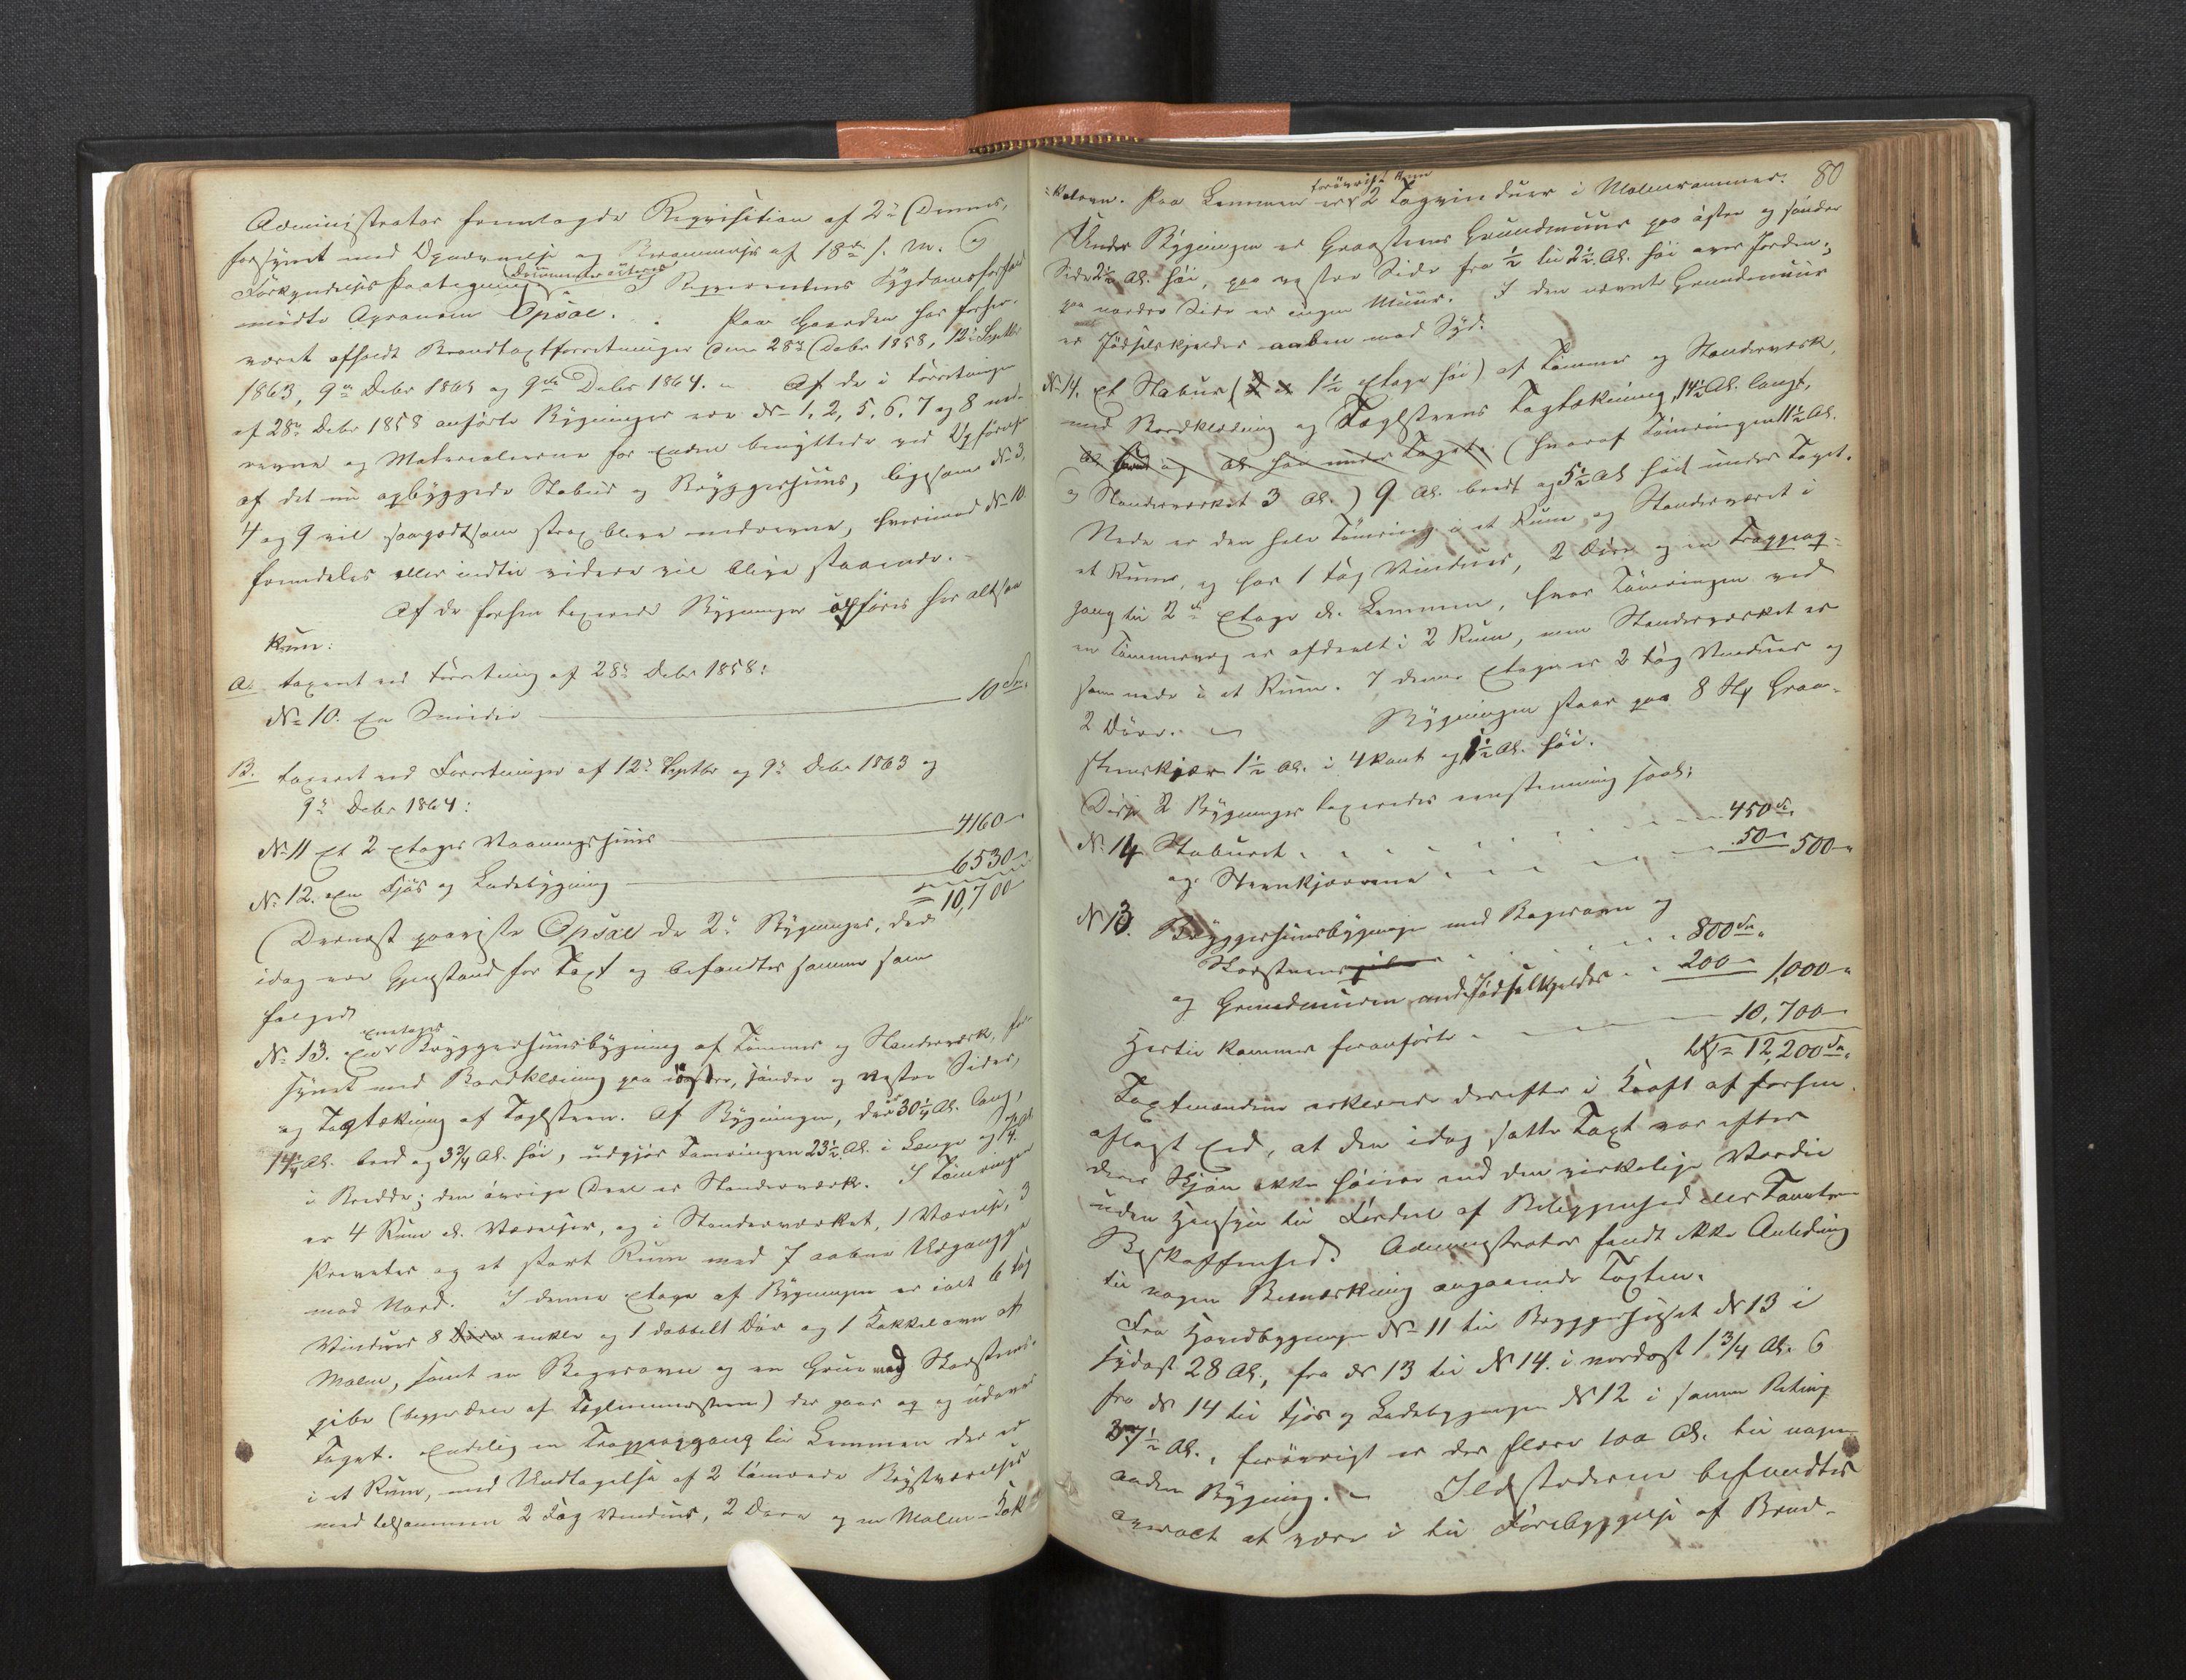 Administrator fremlagde Requisition af 2den Dennes,
forsynet med Opnævnelse og Berammelse af 18de s. M. og
Forkyndelses Paategning.
Documenter
I Requirentens Sygdomsforfald
mødte Agronom Opsal. Paa Gaarden har forhen
været afholdt Brandtaxtforretninger den 28de Debr 1858, 12te Septbr
1863, 9de Debr 1863 og 9de Debr 1864. Af de i Forretningen
af 28de Debr 1858 anførte Bygninger ere No 1, 2, 5, 6, 7 og 8 ned-
revne og Materialierne for Enden benyttede ved Opførelse
af det nu opbyggede Stabur og Bryggerhuus, ligesom No 3,
4 og 9 vil saagodtsom strax blive nedrevne, hvorimod No 10
fremdeles eller indtil videre vil blive staaende.
Af de forhen taxerede Bygninger opføres her altsaa
kun:
A. taxeret ved Forretning af 28de Debr 1858:
No 10. En Smidie 10 Spd.
B. taxeret ved Forretninger af 12te Septbr og 9de Debr 1863 og
9de Debr 1864:
No 11 Et 2 Etages Vaaningshuus 4160
No 12. En Fjøs og Ladebygning 6530
= 10,700
Dernæst paaviste Opsal de 2de Bygninger, der
idag ere Gjenstand for Taxt og befandtes samme som
følger:
No 13. En eenetages Bryggerhuusbygning af Tømmer og Stenderværk, for-
synet med Bordklædning paa østre, søndre og vestre Sider,
og Tagtækning af Taglsteen. Af Bygningen, der er 30 1/4 Al. lang,
14 1/4 Al. bred og 3 3/4 Al. høi, udgjør Tømringen 23 1/2 Al. i Længe og
i Bredde; den øvrige Deel er Stenderværk. I Tømringen
er 4 Rum el. Værelser, og i Stenderværket, 1 Værelse, 3
Priveter og et stort Rum med 7 aabne Udgange
mod Nord. I denne Etage af Bygningen er ialt 6 Fag
Vinduer 8 Døre enkle og 1 dobbelt Dør og 1 Kakkelovn af
Malm, samt en Bagerovn og en Grue med Skorsteens-
pibe (begge Dele af Taglmuursteen) der gaar op og udover
Taget. Endelig en Trappeopgang til Lemmen der er
i et Rum, med Undtagelse af 2 tømrede Kvistværelser
med tilsammen 2 Fag Vinduer, 2 Døre og en Malm-Kak-
80
kelovn. Paa Lemmen er forøvrigt 2 Tagvinduer i Malmrammer.
Under Bygningen er Graasteens Grundmuur paa østre og søndre
Side 2 1/2 Al. høi, paa vestre Side fra 1/2 til 2 1/2 Al. høi over Jorden;
paa nordre Side er ingen Muur. I den nævnte Grundmuur
er Fødselskjelder aaben mod Syd.
No 14. Et Stabur (1 1/2 Etage høi) af Tømmer og Stenderværk,
med Bordklædning og Taglsteens Tagtækning, 14 1/2 Al. langt,
Al. bred og Al. høi under Taget. (hvoraf Tømringen 11 1/2 Al.
og Stenderværket 3 Al.) 9 Al. bredt og 5 1/2 Al. høit under Taget.
Nede er den hele Tømring i et Rum, og Stenderværket i
et Rum, og har 1 Fag Vinduer, 2 Døre og en Trappeop-
gang til 2den Etage el. Lemmen, hvor Tømringen ved
en Tømmervæg er afdeelt i 2 Rum, men Stenderværket er
som nede i et Rum. I denne Etage er 2 Fag Vinduer og
2 Døre. Bygningen staar paa 8 Stk Graa-
steenskjær 1 1/2 Al. i 4kant og 1 1/2 Al. høi.
Disse 2 Bygninger taxeredes eenstemmig saal:
No 14 Staburet 450 Spd.
og Steenkjærene 50 500
No 13. Bryggerhuusbygningen med Bagerovn og
Skorsteenspibe 800 Spd.
og Grundmuren med Fødselskjelder 200 1,000
Hertil kommer foranførte 10,700
= 12,200 Spd.
Taxtmændene erklærede derefter i Kraft af forhen
aflagt Eed, at den idag satte Taxt var efter
deres Skjøn ikke høiere end den virkelige Værdie
uden Hensyn til Fordeel af Beliggenhed eller Tomtens
Beskaffenhed. Administrator fandt ikke Anledning
til nogen Bemærkning angaaende Taxten.
Fra Hovedbygningen No 11 til Bryggerhuset No 13 i
Sydost 28 Al., fra No 13 til No 14. i nordost 1 3/4 Al. og
fra No 14 til Fjøs og Ladebygningen No 12 i samme Retning
37 1/2 Al., forøvrigt er der flere 100 Al. til nogen
anden Bygning. Ildstederne befandtes
overalt at være i til Forebyggelse af Brand-